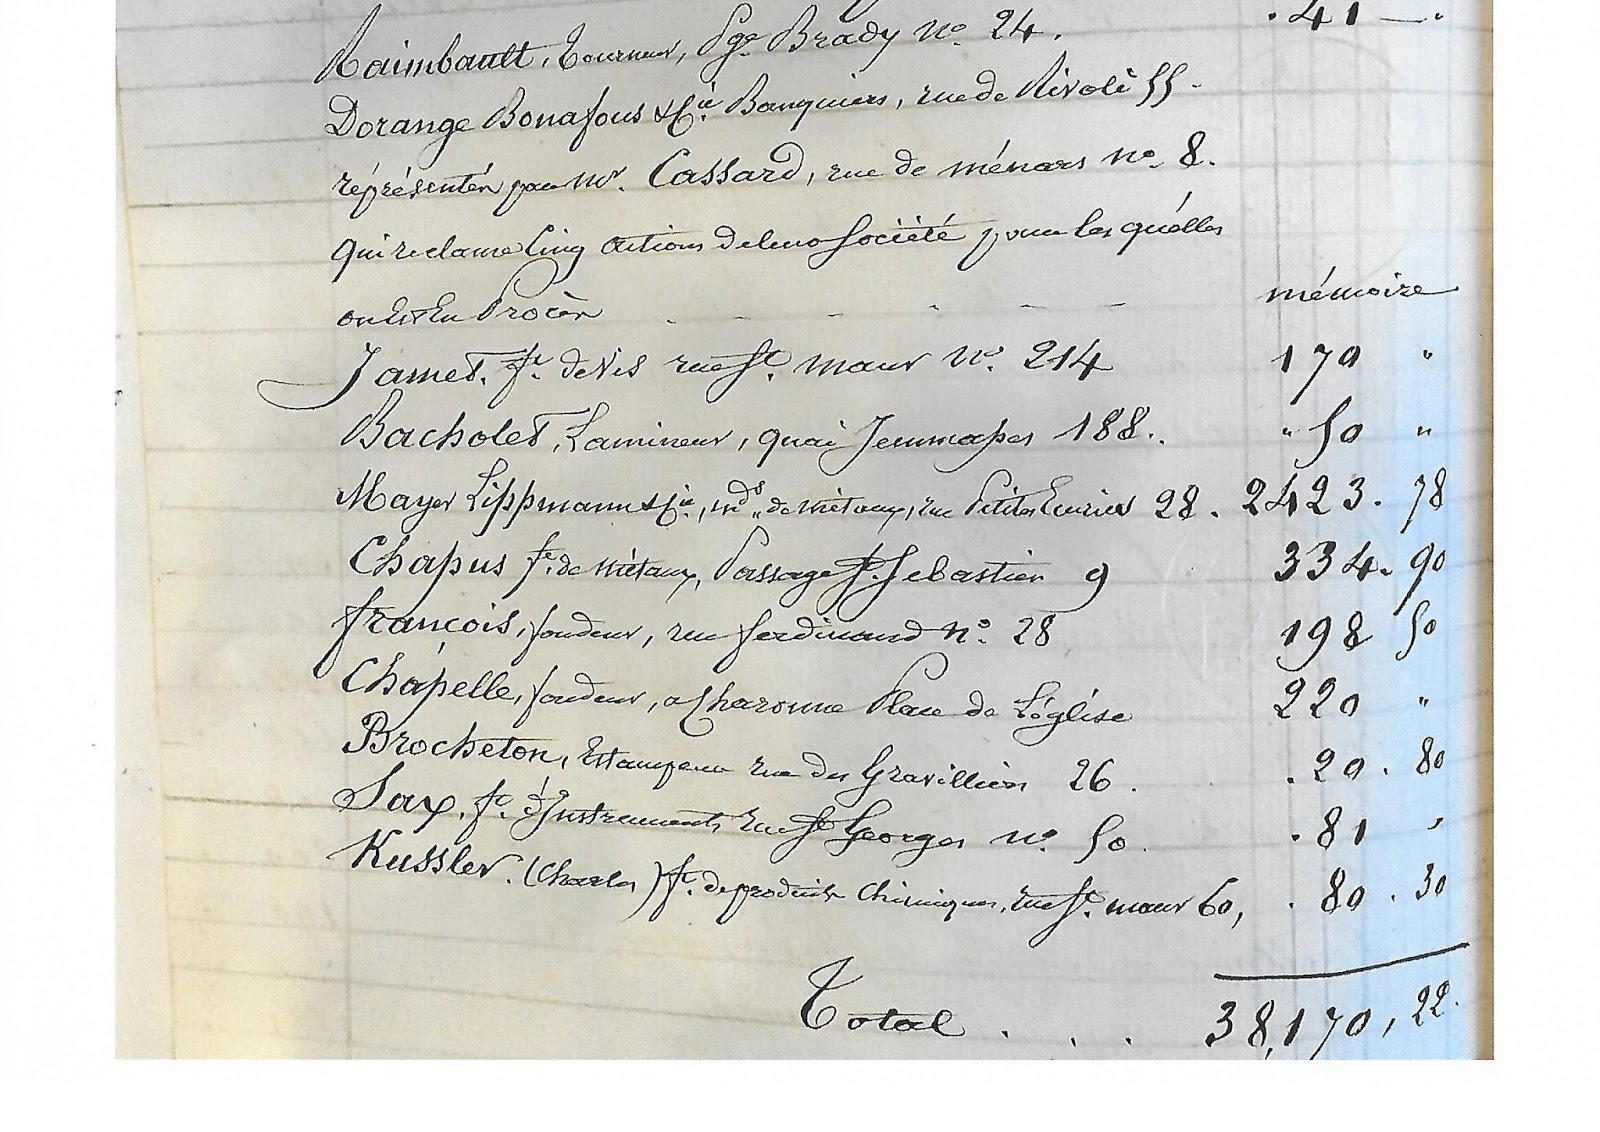 Raimbault, Tourneur, Pge. Brady No. 24. . 41 — .
Dorange Bonafous & Cie. Banquiers, rue de Rivoli 55.
représentés par Mr. Cassard, rue de ménars no. 8.
qui reclame Cinq actions de leur Société pour les quelles
on Est En Procès - - - - - mémoire
Jamet. ft. de Vis rue St. maur No. 214 170 "
Bacholet, Lamineur, quai Jemmapes 188. . " 50 "
Mayer Lippmann & Cie, mds. de Métaux, rue Petites Ecuries 28. 2423. 78
Chapus ft. de Métaux, Passage St. Sebastien 9 334. 90
françois, fondeur, rue ferdinand no. 28 198 50
Chapelle, fondeur, a Charonne Place de L'église 220 "
Brocheton, Estampeur rue des Gravilliers 26. . 20. 80
Sax, ft. d'Instruments rue St Georges No. 50. . 81 "
Kussler. (Charles) ft. de produits Chimiques, rue St. maur 60, . 80. 30
Total . . . 38,170, 22.